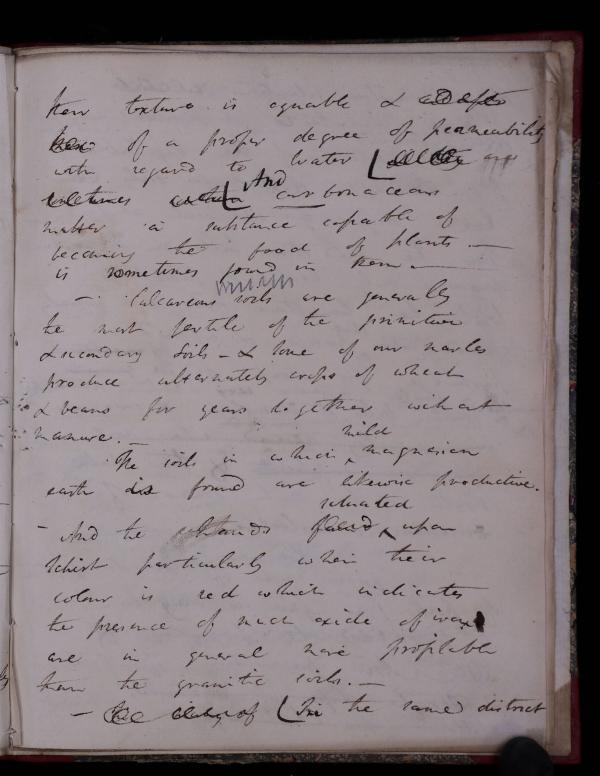 their texture is equable &
of a proper degree of permeability
with regard to water [ are
[And carbonaceous
matter a substance capable of
becoming the food of plants —
is sometimes found in them —
— Calcareous soils are generally
the most fertile of the primitive
& secondary soils – & some of our marles
produce alternately crops of wheat
& beans for years together without
manure. —
mild
The soils in which ^ magnesian
earth is found are likewise productive.
situated
– And the lands ^ upon
schist particularly when their
colour is red which indicates
the presence of much oxide of iron
are in general more profitable
than the granitic soils. —
— of [In the same district